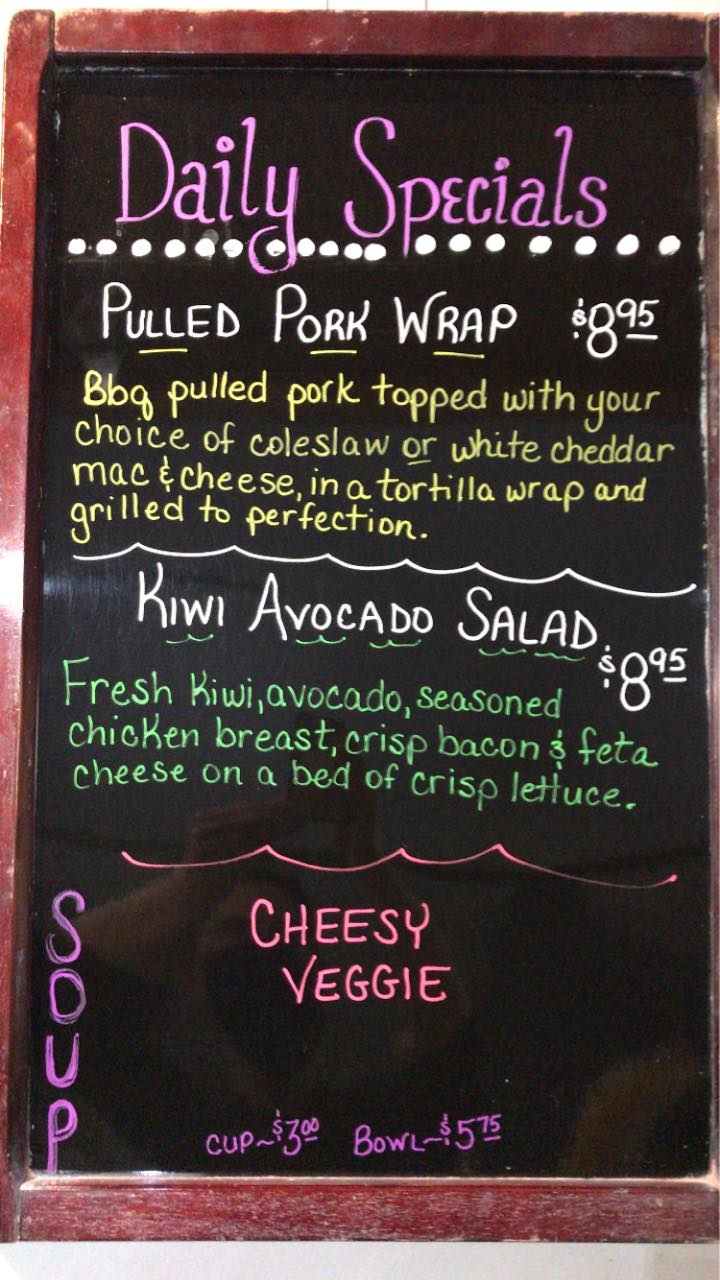 Daily Specials
PULLED PORK WRAP $8.95
Bbq pulled pork topped with your
choice of coleslaw or white cheddar
mac & cheese, in a tortilla wrap and
grilled to perfection.
KIWI AVOCADO SALAD
$8.95
Fresh Kiwi, avocado, seasoned
chicken breast, crisp bacon & feta
cheese on a bed of crisp lettuce.
SOUP
CHEESY
VEGGIE
CUP~$3.00 BOWL~$5.75